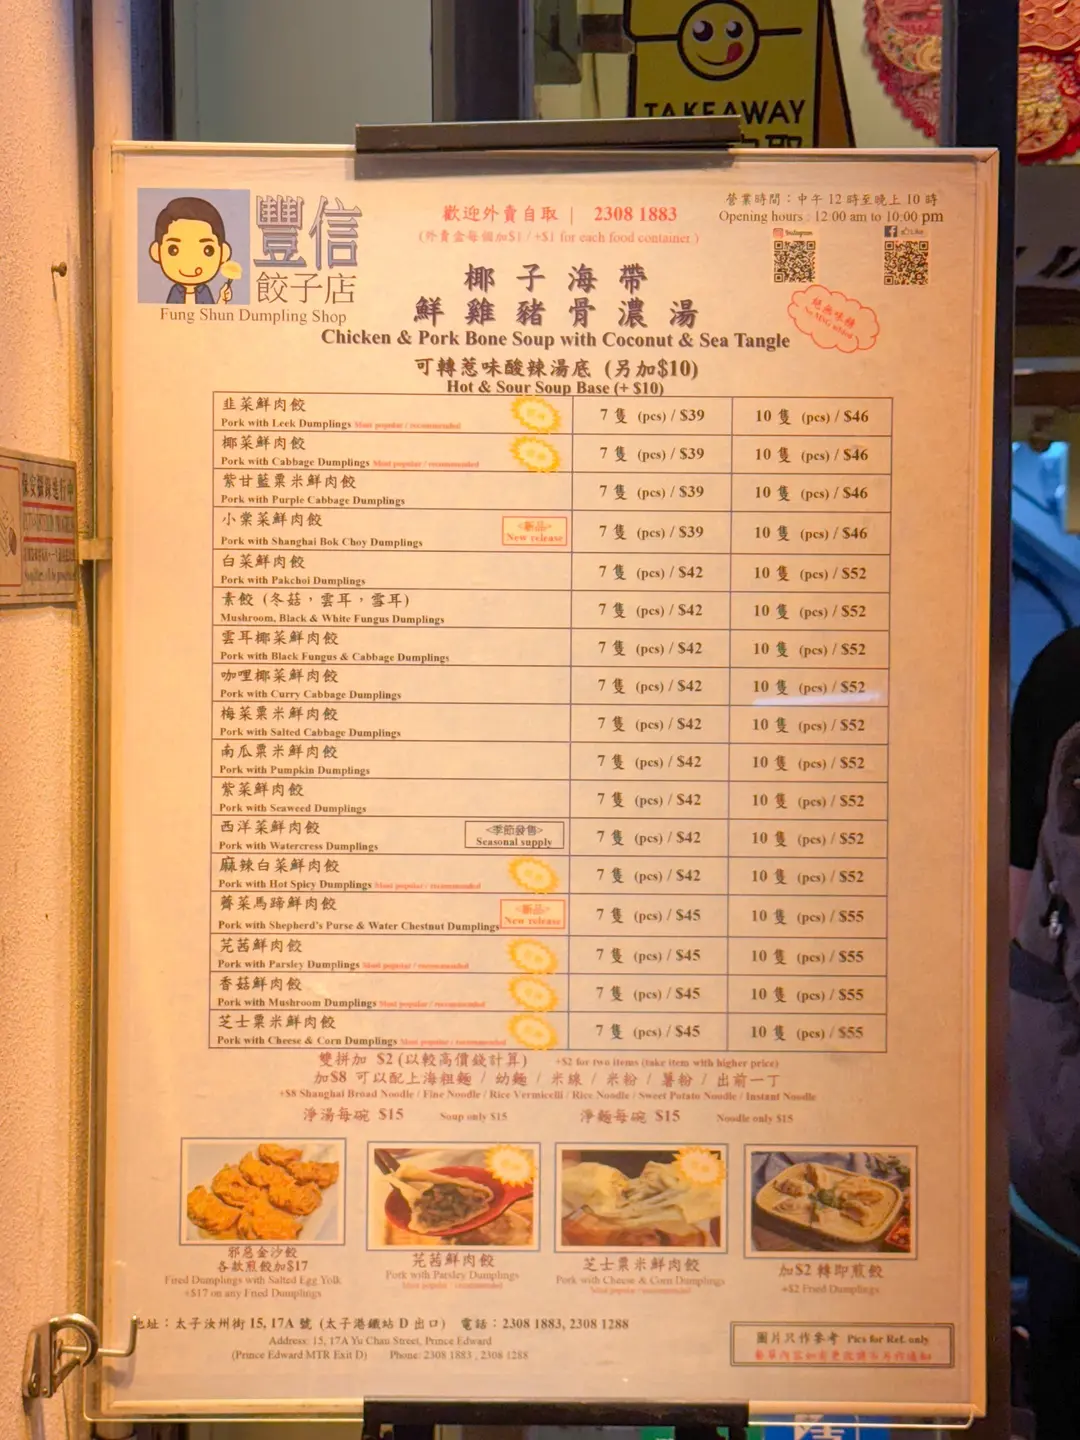 TAKEAWAY
豐信
餃子店
Fung Shun Dumpling Shop
歡迎外賣自取 | 2308 1883
(外賣盒每個加$1 / +$1 for each food container )
營業時間：中午 12 時至晚上 10 時
Opening hours : 12:00 am to 10:00 pm
Instagram
Like
椰子海帶
鮮雞豬骨濃湯
Chicken & Pork Bone Soup with Coconut & Sea Tangle
絕無味精
No MSG added
可轉惹味酸辣湯底 (另加$10)
Hot & Sour Soup Base (+ $10)
韭菜鮮肉餃
Pork with Leek Dumplings Most popular / recommended
7 隻 (pcs) / $39
10 隻 (pcs) / $46
椰菜鮮肉餃
Pork with Cabbage Dumplings Most popular / recommended
7 隻 (pcs) / $39
10 隻 (pcs) / $46
紫甘藍粟米鮮肉餃
Pork with Purple Cabbage Dumplings
7 隻 (pcs) / $39
10 隻 (pcs) / $46
小棠菜鮮肉餃
Pork with Shanghai Bok Choy Dumplings
<新品>
New release
7 隻 (pcs) / $39
10 隻 (pcs) / $46
白菜鮮肉餃
Pork with Pakchoi Dumplings
7 隻 (pcs) / $42
10 隻 (pcs) / $52
素餃 (冬菇，雲耳，雪耳)
Mushroom, Black & White Fungus Dumplings
7 隻 (pcs) / $42
10 隻 (pcs) / $52
雲耳椰菜鮮肉餃
Pork with Black Fungus & Cabbage Dumplings
7 隻 (pcs) / $42
10 隻 (pcs) / $52
咖哩椰菜鮮肉餃
Pork with Curry Cabbage Dumplings
7 隻 (pcs) / $42
10 隻 (pcs) / $52
梅菜粟米鮮肉餃
Pork with Salted Cabbage Dumplings
7 隻 (pcs) / $42
10 隻 (pcs) / $52
南瓜粟米鮮肉餃
Pork with Pumpkin Dumplings
7 隻 (pcs) / $42
10 隻 (pcs) / $52
紫菜鮮肉餃
Pork with Seaweed Dumplings
7 隻 (pcs) / $42
10 隻 (pcs) / $52
西洋菜鮮肉餃
Pork with Watercress Dumplings
<季節發售>
Seasonal supply
7 隻 (pcs) / $42
10 隻 (pcs) / $52
麻辣白菜鮮肉餃
Pork with Hot Spicy Dumplings Most popular / recommended
7 隻 (pcs) / $42
10 隻 (pcs) / $52
薺菜馬蹄鮮肉餃
Pork with Shepherd's Purse & Water Chestnut Dumplings
<新品>
New release
7 隻 (pcs) / $45
10 隻 (pcs) / $55
芫茜鮮肉餃
Pork with Parsley Dumplings Most popular / recommended
7 隻 (pcs) / $45
10 隻 (pcs) / $55
香菇鮮肉餃
Pork with Mushroom Dumplings Most popular / recommended
7 隻 (pcs) / $45
10 隻 (pcs) / $55
芝士粟米鮮肉餃
Pork with Cheese & Corn Dumplings Most popular / recommended
7 隻 (pcs) / $45
10 隻 (pcs) / $55
雙拼加 $2 (以較高價錢計算) +$2 for two items (take item with higher price)
加$8 可以配上海粗麵 / 幼麵 / 米線 / 米粉 / 薯粉 / 出前一丁
+$8 Shanghai Broad Noodle / Fine Noodle / Rice Vermicelli / Rice Noodle / Sweet Potato Noodle / Instant Noodle
淨湯每碗 $15 Soup only $15 淨麵每碗 $15 Noodle only $15
邪惡金沙餃
各款煎餃加$17
Fried Dumplings with Salted Egg Yolk
+$17 on any Fried Dumplings
芫茜鮮肉餃
Pork with Parsley Dumplings
Most popular / recommended
芝士粟米鮮肉餃
Pork with Cheese & Corn Dumplings
Most popular / recommended
加$2 轉即煎餃
+$2 Fried Dumplings
地址：太子汝州街 15, 17A 號 (太子港鐵站 D 出口) 電話：2308 1883, 2308 1288
Address: 15, 17A Yu Chau Street, Prince Edward
(Prince Edward MTR Exit D) Phone: 2308 1883 , 2308 1288
圖片只作參考 Pics for Ref. only